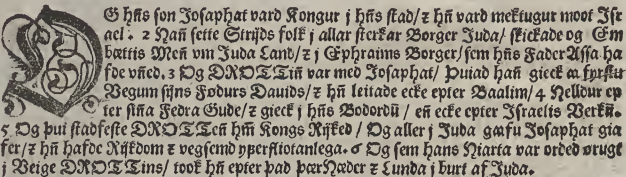 OG hn̄s son Josaphat vard Kongur j hn̄s stad/ ⁊ hn̄ vard mektugur moot Jsr
ael. 2 Nan̄ sette Strijds folk j allar sterkar Borger Juda/ skickade og Em
bættis Men̄ vm Juda Land/ ⁊ j Ephraims Borger/ sem hn̄s Fader Assa ha
fde vn̄ed. 3 Og DROTTin̄ var med Josaphat/ þuiad han̄ gieck aa fyrstu
Vegum sijns Fodurs Dauids/ ⁊ hn̄ leitade ecke epter Baalim/ 4 Helldur ep
ter sin̄a Fedra Gude/ ⁊ gieck j hn̄s Bodordū/ en̄ ecke epter Jsraelis Verkū.
5 Og þui stadfeste DROTTen̄ hm̄ Kongs Rijked/ Og aller j Juda gaafu Josaphat gia
fer/ ⁊ hn̄ hafde Rijkdom ⁊ vegsemd yperfliotanlega. 6 Og sem hans Hiarta var orded ørugt
j Veige DROTTins/ took hn̄ epter þad þær Hæder ⁊ Lunda j burt af Juda.